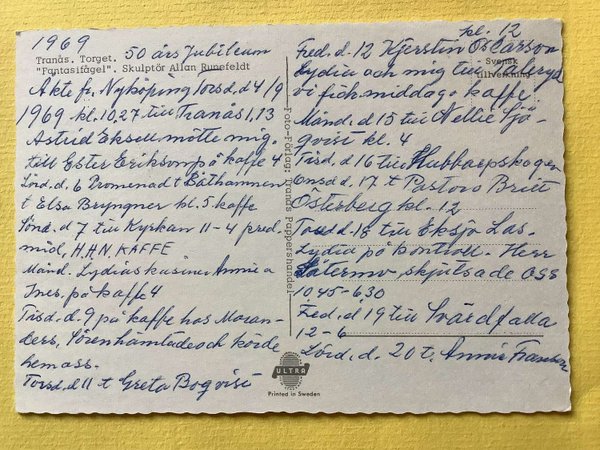 1969
50 års Jubileum
Tranås. Torget.
"Fantasifågel". Skulptör Allan Runefeldt
Åkte fr. Nyköping Torsd. d 4/9
1969 kl. 10.27 till Tranås 1,13
Astrid Eksell mötte mig.
till Ester Eriksson på kaffe 4
Lörd. d. 6 Promenad t Båthamnen
t Elsa Bryngner kl. 5. kaffe
Sönd. d 7 till Kyrkan 11-4 pred.
mid, H.H.N. KAFFE
Månd. Lydias kusiner Annie o
Ines. på kaffe 4
Tisd. d. 9 på kaffe hos Moran-
ders, Sören hämtade och körde
hem oss.
Torsd. d 11 t Greta Bogvist
Foto-Förlag: Tranås Pappershandel
kl. 12
Fred. d. 12 Kjerstin Oscarson
Svensk
tillverkning
Lydia och mig till
vi fick middag o kaffe
Månd. d 15 till Nellie Sjö-
qvist kl. 4
Tisd. d 16 till Hubbarpskogen
Onsd d. 17 t Pastor Britt
Österberg kl. 12
Torsd d. 18 till Eksjö Las.
Lydia på kontroll. Herr
skjutsade oss
10,45-6,30
Fred. d 19 till Svärdfalla
12-6
Lörd. d. 20 t. Annie
ULTRA
Printed in Sweden